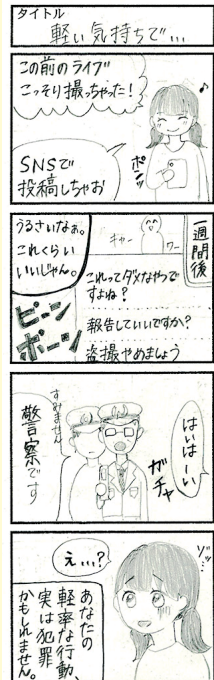 タイトル
軽い気持ちで…
この前のライブ
こっそり撮っちゃった！
ポンッ
SNSで
投稿しちゃお
一週間後
キャー
ワー
うるさいなぁ。
これくらい
いいじゃん。
これってダメなやつで
すよね？
報告していいですか？
盗撮やめましょう
ピーン
ポーン
はいはーい
ガチャ
すみません
警察です
ゾッ…
え…？
あなたの
軽率な行動、
実は犯罪
かもしれません。